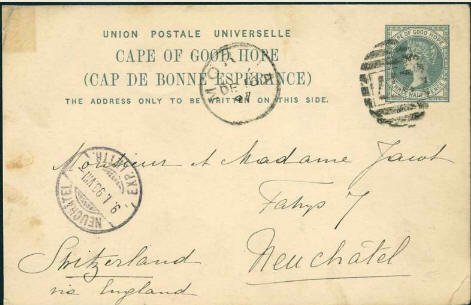 UNION POSTALE UNIVERSELLE
CAPE OF GOOD HOPE
(CAP DE BONNE ESPÉRANCE)
THE ADDRESS ONLY TO BE WRITTEN ON THIS SIDE.
CAPE OF GOOD HOPE
DE
Monsieur et Madame
Fahys 7
Neuchâtel
NEUCHATEL
EXP. LETTR.
Switzerland
via England